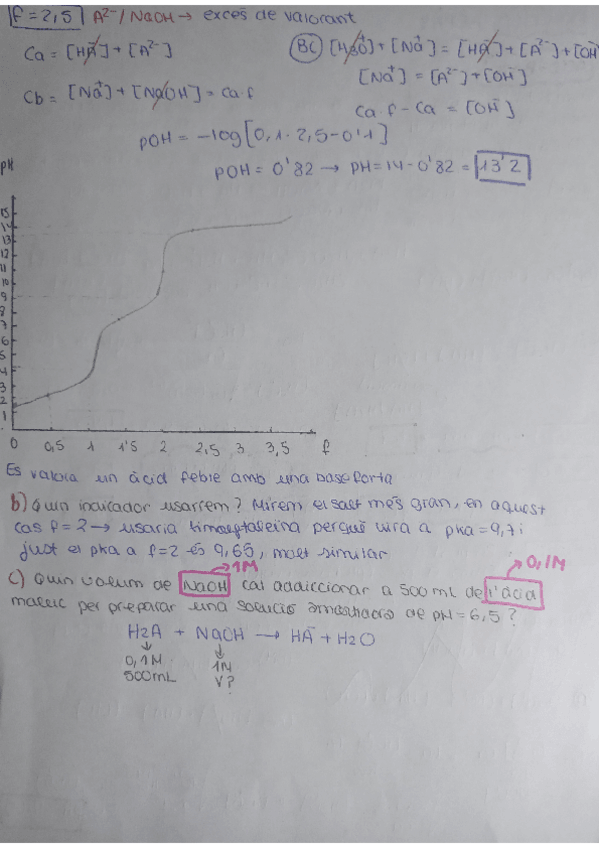 f = 2,5 A²⁻/NaOH → excés de valorant
Ca = [HA⁻] + [A²⁻]
BC [H₃O⁺] + [Na⁺] = [HA⁻] + [A²⁻] + [OH⁻]
[Na⁺] = [A²⁻] + [OH⁻]
Cb = [Na⁺] + [NaOH] = Ca·f
Ca·f - Ca = [OH⁻]
pOH = -log[0,1·2,5-0'1]
pOH = 0'82 → pH = 14 - 0'82 = 13'2
pH
15
14
13
12
11
10
9
8
7
6
5
4
3
2
1
0 0,5 1 1'5 2 2,5 3 3,5 f
Es valora un àcid feble amb una base forta
b) Quin indicador usarrem? Mirem el salt més gran, en aquest
cas f=2 → usaria timolftaleina perquè vira a pka=9,7 i
just el pka a f=2 és 9,65, molt similar
→ 1M
→ 0,1M
c) Quin volum de NaOH cal addiccionar a 500 mL de l'àcid
maleic per preparar una solució amortidora de pH=6,5?
H2A + NaOH → HA⁻ + H2O
↓ ↓
0,1M 1M
500mL V?